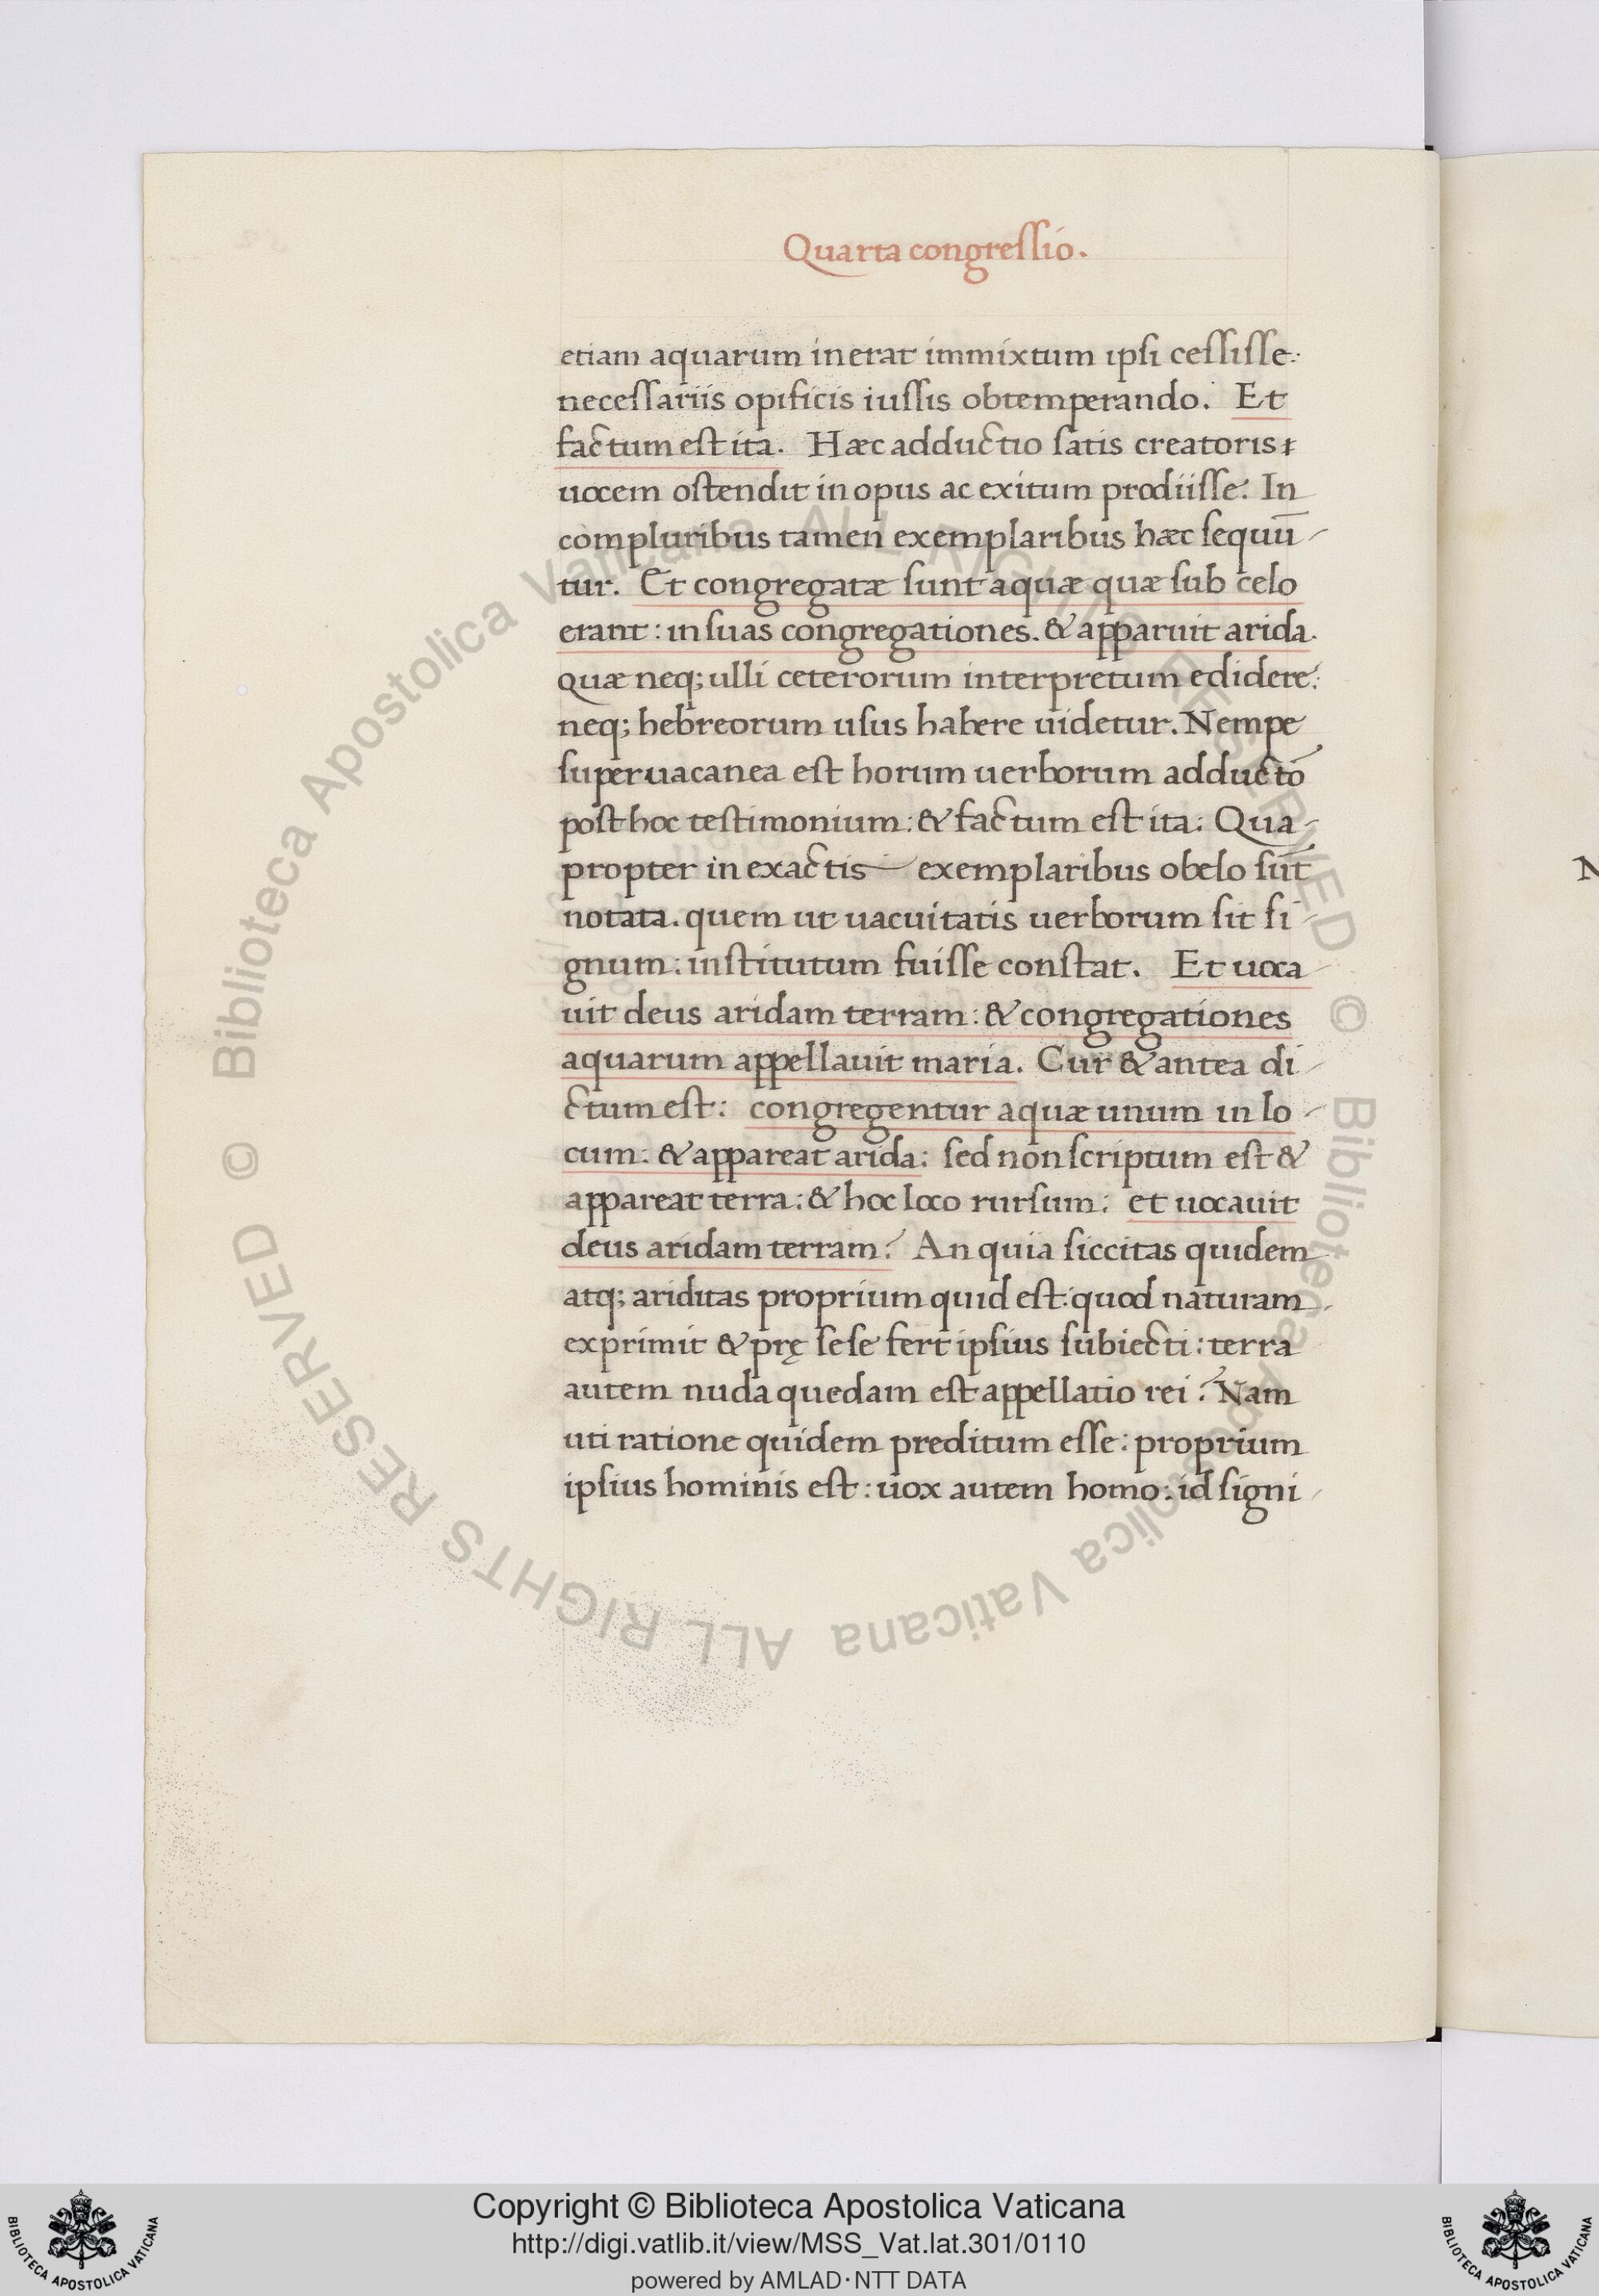 Quarta congressio.
etiam aquarum inerat immixtum ipsi cessisse:
necessariis opificis iussis obtemperando. Et
factum est ita. Hæc adductio satis creatoris
uocem ostendit in opus ac exitum prodiisse. In
compluribus tamen exemplaribus hæc sequū-
tur. Et congregatæ sunt aquæ quæ sub celo
erant: in suas congregationes. & apparuit arida.
quæ neq; ulli ceterorum interpretum edidere:
neq; hebreorum usus habere uidetur. Nempe
superuacanea est horum uerborum adductō
post hoc testimonium: & factum est ita: Qua-
propter in exactis exemplaribus obelo sūt
notata. quem ut uacuitatis uerborum sit si-
gnum: institutum fuisse constat. Et uoca-
uit deus aridam terram: & congregationes
aquarum appellauit maria. Cur & antea di-
ctum est: congregentur aquæ unum in lo-
cum: & appareat arida: sed non scriptum est &
appareat terra: & hoc loco rursum: et uocauit
deus aridam terram? An quia siccitas quidem
atq; ariditas proprium quid est: quod naturam
exprimit & prę sese fert ipsius subiecti: terra
autem nuda quedam est appellatio rei? Nam
uti ratione quidem preditum esse: proprium
ipsius hominis est: uox autem homo: id signi-
N
© Biblioteca Apostolica Vaticana ALL RIGHTS RESERVED © Biblioteca Apostolica Vaticana ALL RIGHTS RESERVED
Copyright © Biblioteca Apostolica Vaticana
http://digi.vatlib.it/view/MSS_Vat.lat.301/0110
powered by AMLAD·NTT DATA
BIBLIOTECA APOSTOLICA VATICANA
BIBLIOTECA APOSTOLICA VATICANA